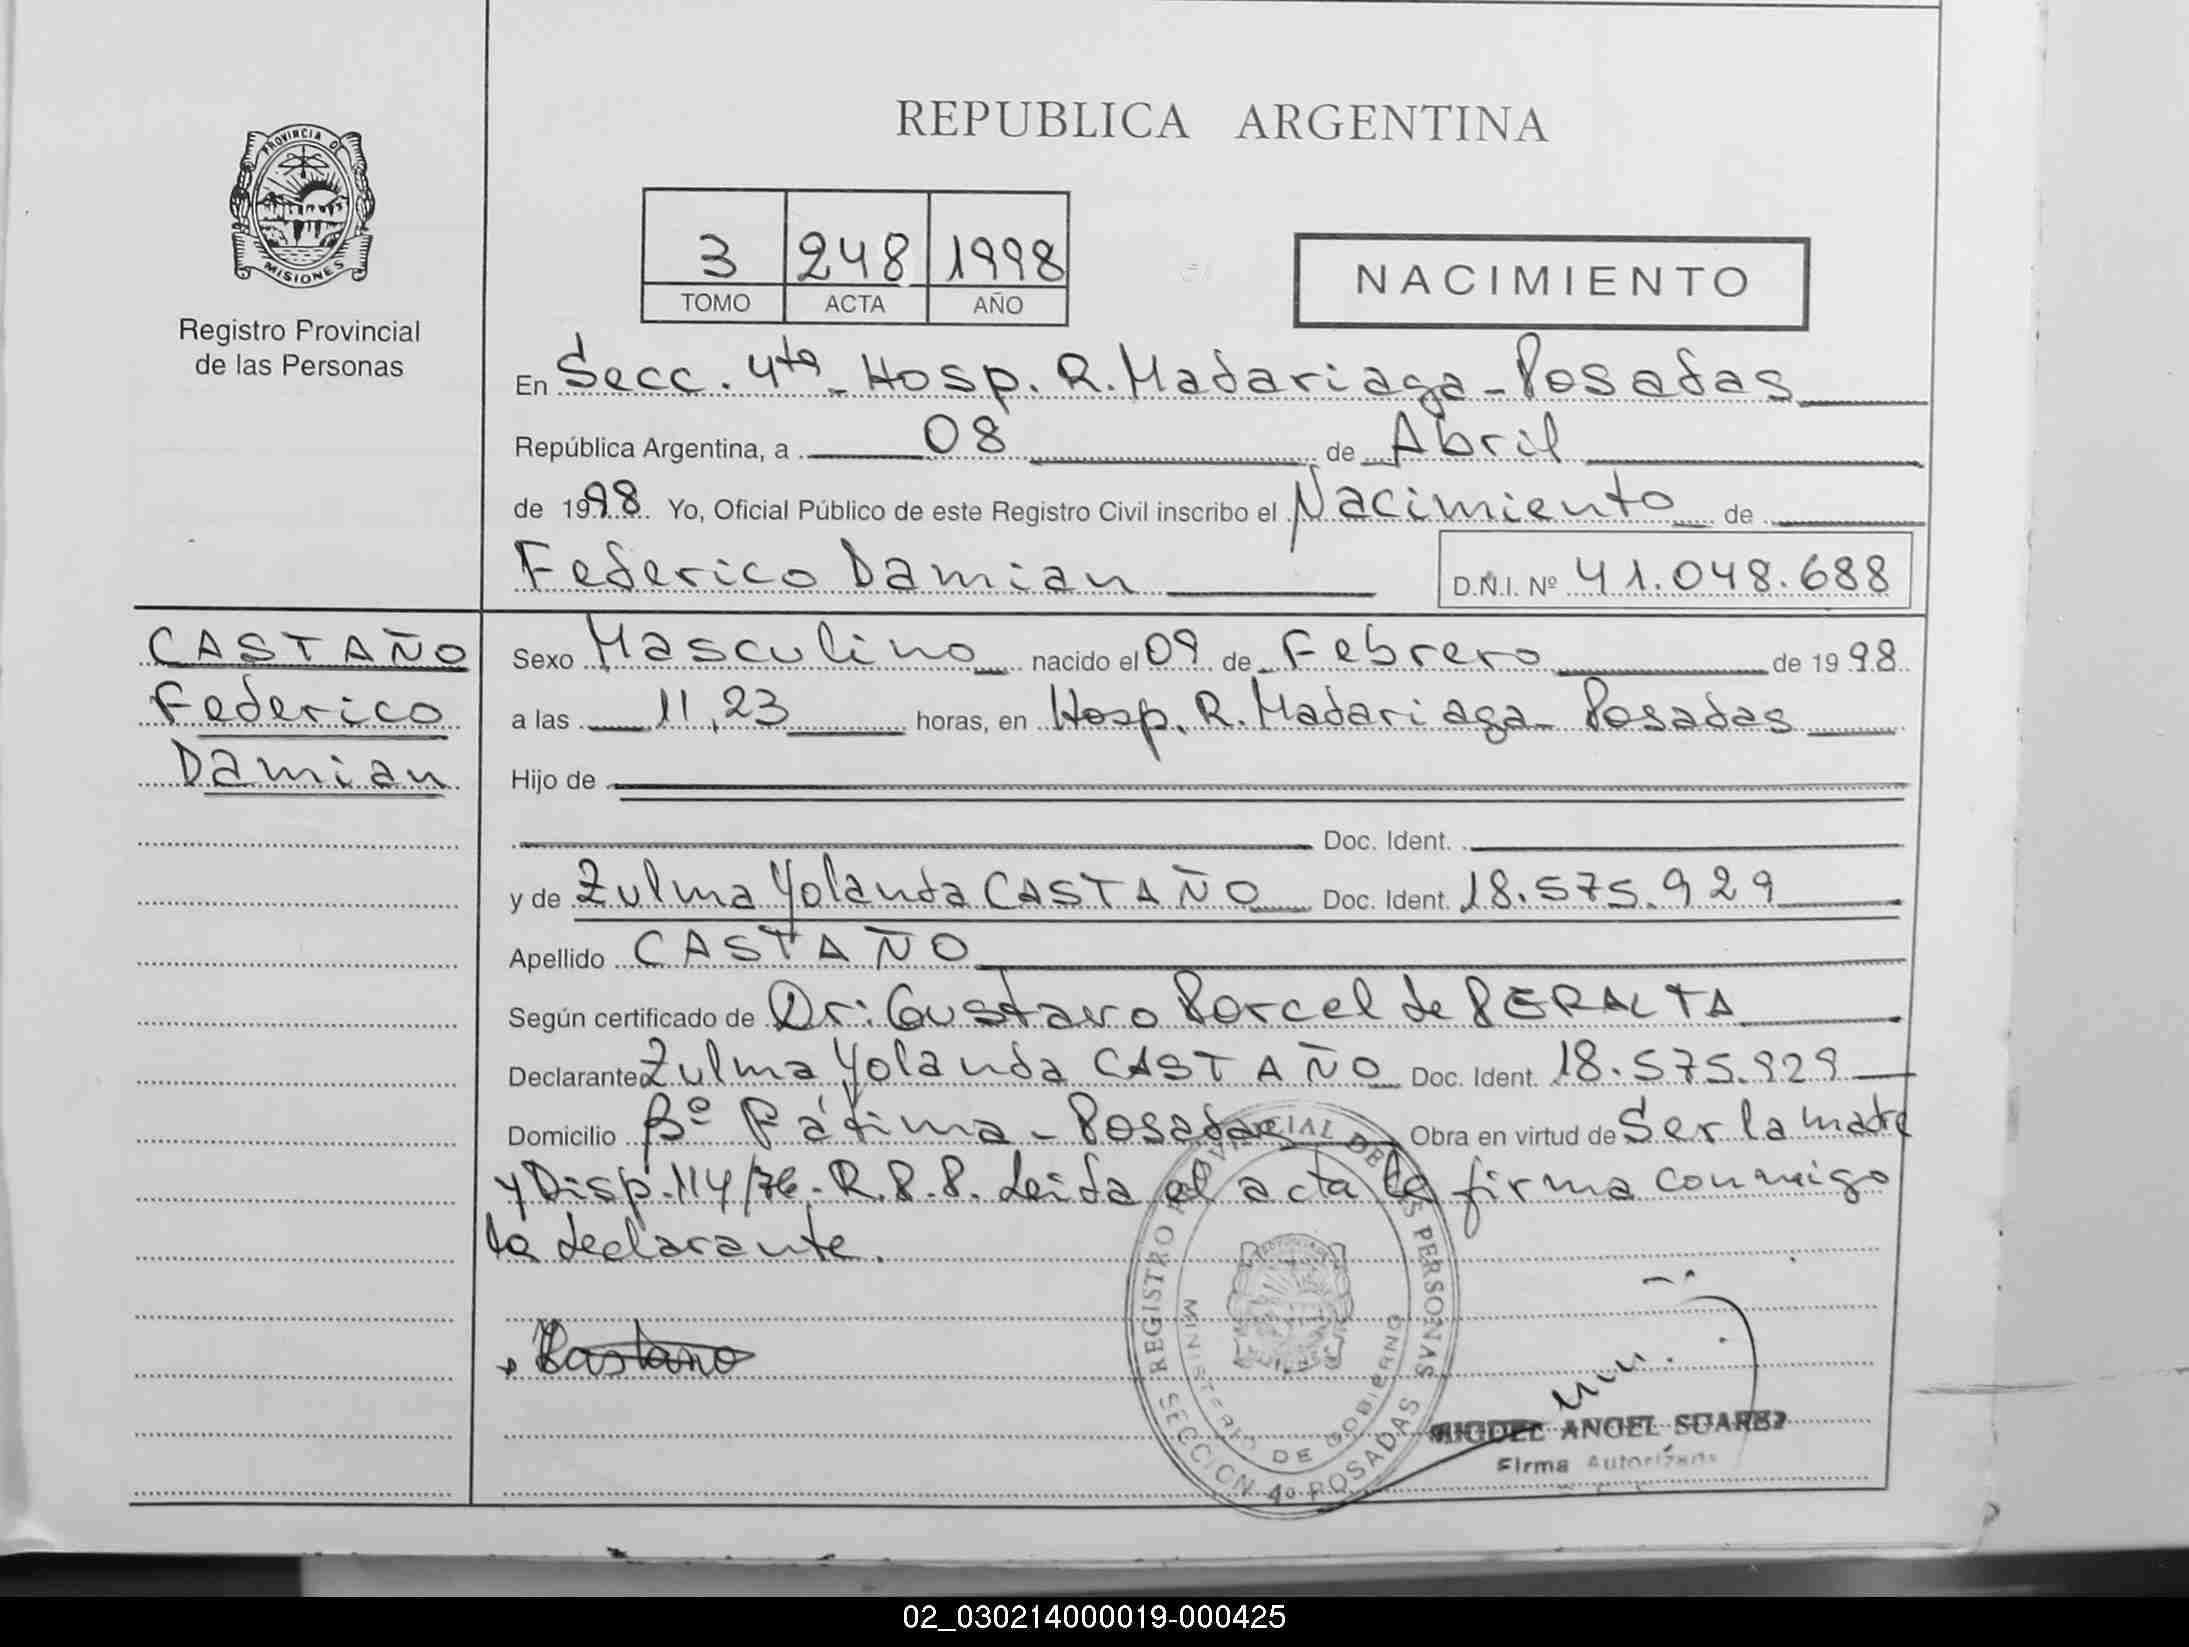 REPUBLICA ARGENTINA
PROVINCIA D
MISIONES
Registro Provincial
de las Personas
3 248 1998
TOMO ACTA AÑO
NACIMIENTO
En Secc. 4ta - Hosp. R. Madariaga - Posadas
República Argentina, a 08 de Abril
de 1998. Yo, Oficial Público de este Registro Civil inscribo el Nacimiento de
Federico Damian D.N.I. Nº 41.048.688
CASTAÑO
Federico
Damian
Sexo Masculino nacido el 09 de Febrero de 1998
a las 11,23 horas, en Hosp. R. Madariaga - Posadas
Hijo de
Doc. Ident.
y de Zulma Yolanda CASTAÑO Doc. Ident. 18.575.929
Apellido CASTAÑO
Según certificado de Dr: Gustavo Porcel de PERALTA
Declarante Zulma Yolanda CASTAÑO Doc. Ident. 18.575.929
Domicilio Bº Fátima - Posadas Obra en virtud de Ser la madre
y Disp. 114/76. R.P.P. Leida el acta la firma conmigo
la declarante.
Castaño
REGISTRO PROVINCIAL DE LAS PERSONAS
MINISTERIO DE GOBIERNO
SECCION 4º POSADAS
MIGUEL ANGEL SUAREZ
Firma Autorizada
02_030214000019-000425